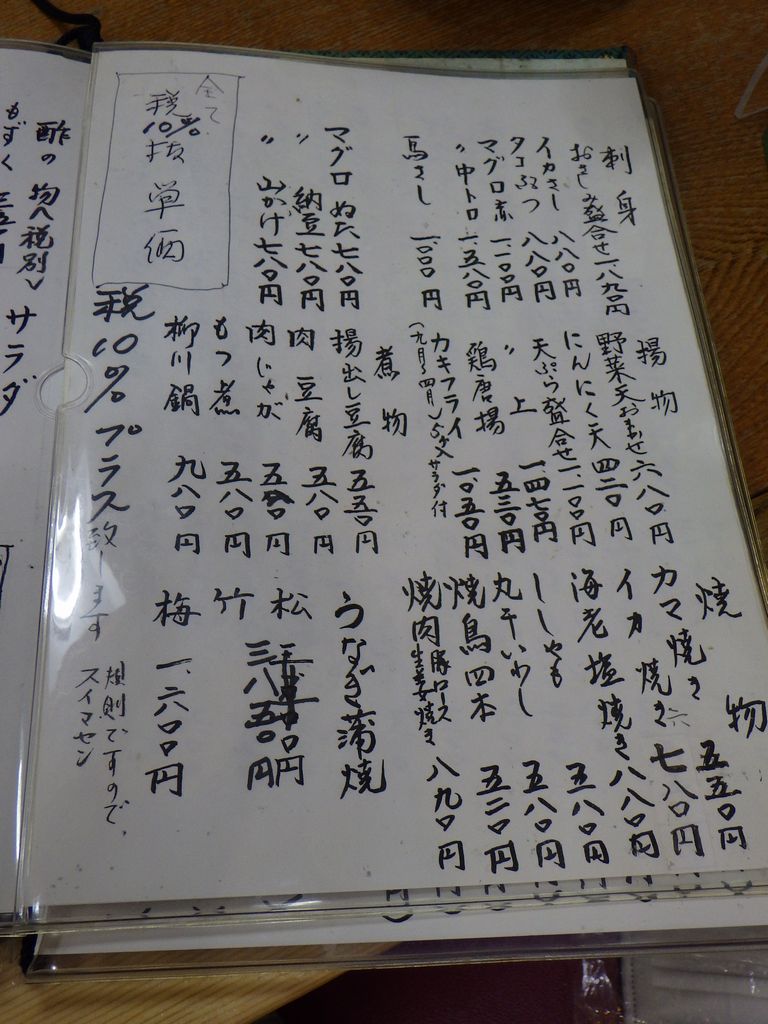 刺身
おさしみ盛合せ 一、八九〇円
イカさし 八八〇円
タコぶつ 八八〇円
マグロ赤 一、一〇〇円
〃中トロ 一、五八〇円
馬さし 一、〇〇〇円
マグロぬた 七八〇円
〃 納豆 七八〇円
〃 山かけ 七八〇円
全て
税10%
抜単価
揚物
野菜天おまかせ 六八〇円
にんにく天 四二〇円
天ぷら盛合せ 一、一〇〇円
〃 上 一、四七〇円
鶏唐揚 五三〇円
カキフライ 一、〇五〇円
(九月〜四月)5ケ入サラダ付
煮物
揚出し豆腐 五五〇円
肉豆腐 五八〇円
肉じゃが 五五〇円
もつ煮 五八〇円
柳川鍋 九八〇円
焼物
カマ焼き 五五〇円
イカ焼き 七八〇円
海老塩焼き 八八〇円
ししゃも 五八〇円
丸干いわし 五八〇円
焼鳥四本 五二〇円
焼肉豚ロース生姜焼き 八九〇円
うなぎ蒲焼
松
竹 三八五〇円
梅 一、六〇〇円
税10%プラス致します
規則ですので、
スイマセン
酢の物〈税別〉
もずく 三五〇円
サラダ